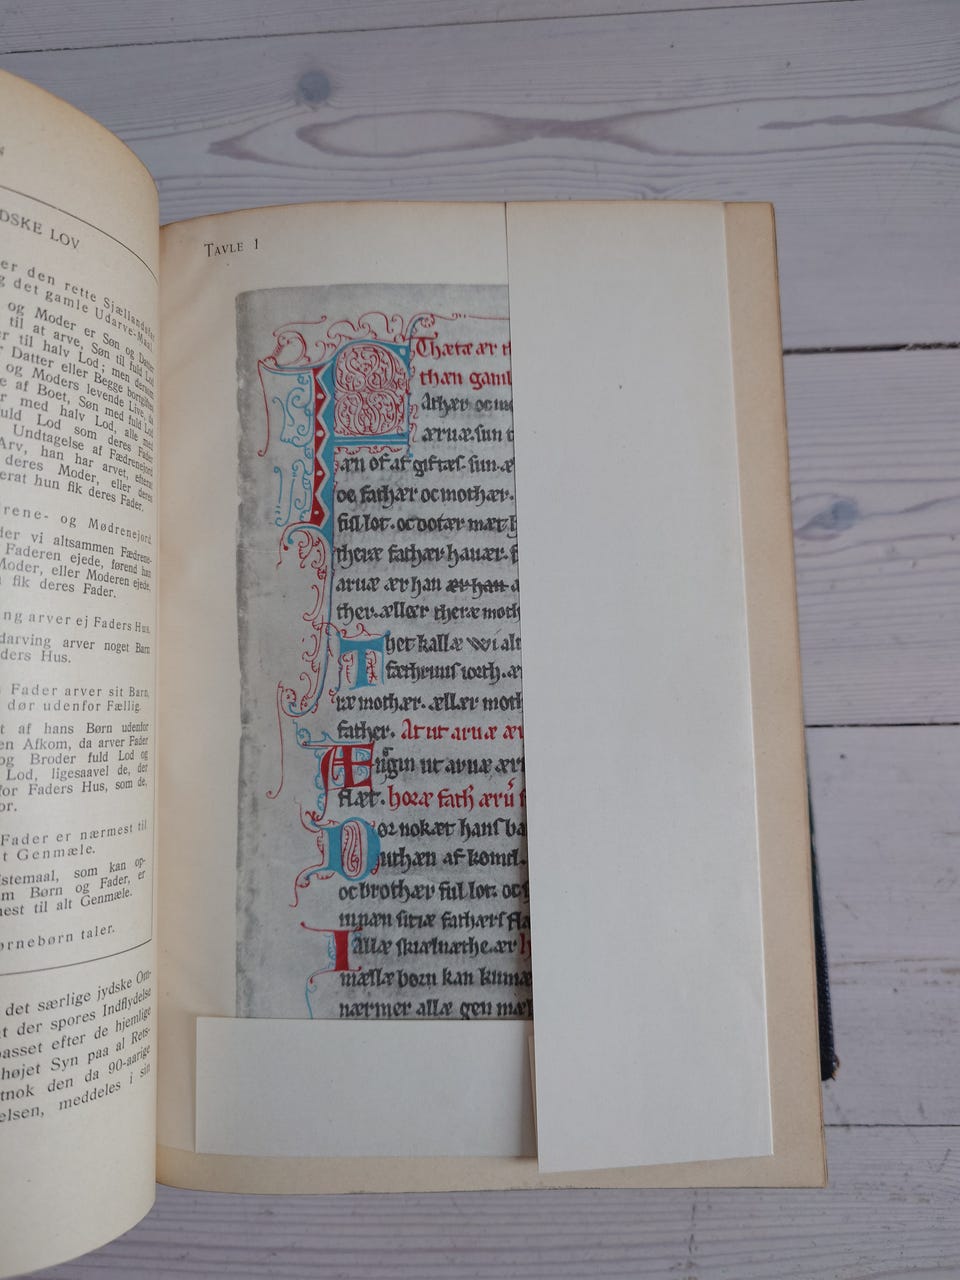 4
DSKE LOV
er den rette Sjællandsfar
g det gamle Udarve-Maal.
og Moder er Søn og Datter
til at arve, Søn til fuld Lod
r til halv Lod; men dersom
r Datter eller Begge bortgiftes
og Moders levende Live, da
e af Boet, Søn med fuld Lod
r med halv Lod, alle med
fuld Lod som deres Fader
Undtagelse af Fædrenejord
Arv, han har arvet, efterat
deres Moder, eller deres
erat hun fik deres Fader.
rene- og Mødrenejord
der vi altsammen Fædrene-
Faderen ejede, førend han
Moder, eller Moderen ejede,
fik deres Fader.
ng arver ej Faders Hus.
darving arver noget Barn
ders Hus.
Fader arver sit Barn,
dør udenfor Fællig.
t af hans Børn udenfor
en Afkom, da arver Fader
og Broder fuld Lod og
Lod, ligesaavel de, der
for Faders Hus, som de,
or.
Fader er nærmest til
t Genmæle.
stemaal, som kan op-
m Børn og Fader, er
mest til alt Genmæle.
ørnebørn taler.
det særlige jydske Om-
t der spores Indflydelse
passet efter de hjemlige
højet Syn paa al Rets-
tnok den da 90-aarige
elsen, meddeles i sin
Tavle 1
Thætæ ær th
thæn gaml
Athær oc mo
æruæ. sun t
æn of af giftæs. sun. æ
oc fathær oc mothær.
full lot. oc dotær mæt h
theræ fathær hauær. f
aruæ ær han ær han a
ther. ællær theræ moth
Thet kallæ wi alt
fæthrnis iorth. æ
ræ mothær. ællær moth
father. At ut aruæ ær
Ængin ut aruæ ær
flæt. horæ fath æru f
Dor nokæt hans ba
uthæn af komd.
oc brothær full lot. oc
innæn sitiæ fathærs fla
I allæ skialnæthe. ær h
mællæ born kan kumæ
nærmer allæ gen mæl